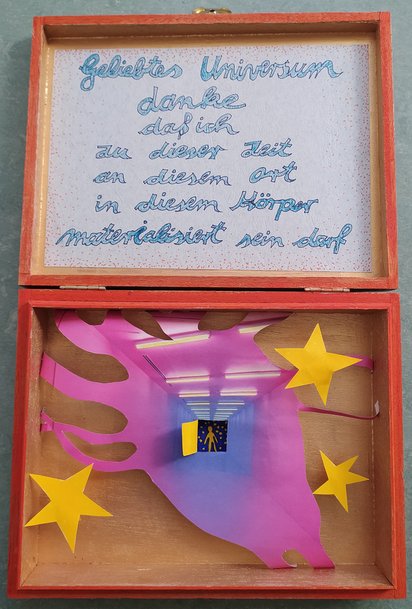 Geliebtes Universum
danke
daß ich
zu dieser Zeit
an diesem Ort
in diesem Körper
materialisiert sein darf